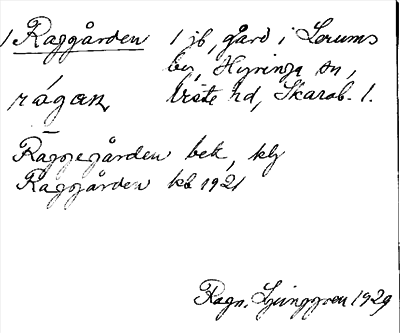 1 Raggården 1 jb, gård i Lerums
by, Hyringa sn,
rágan Viste hd, Skarab. l.
Raggegården bek, klj
Raggården kb 1921
Ragn. Ljunggren 1929